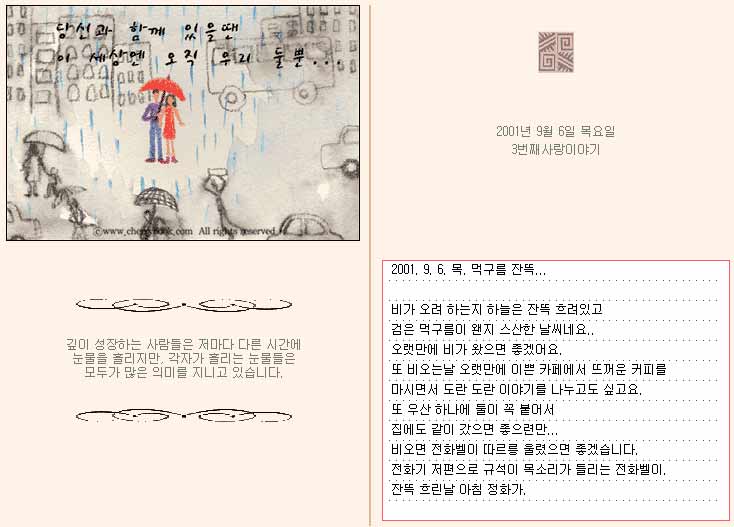 당신과 함께 있을땐
이 세상엔 오직 우리 둘뿐...
ⓒwww.cherrybook.com All rights reserved
깊이 성장하는 사람들은 저마다 다른 시간에
눈물을 흘리지만, 각자가 흘리는 눈물들은
모두가 많은 의미를 지니고 있습니다.
2001년 9월 6일 목요일
3번째사랑이야기
2001. 9. 6. 목. 먹구름 잔뜩...
비가 오려 하는지 하늘은 잔뜩 흐려있고
검은 먹구름이 왠지 스산한 날씨네요..
오랫만에 비가 왔으면 좋겠어요.
또 비오는날 오랫만에 이쁜 카페에서 뜨꺼운 커피를
마시면서 도란 도란 이야기를 나누고도 싶고요.
또 우산 하나에 둘이 꼭 붙어서
집에도 같이 갔으면 좋으련만...
비오면 전화벨이 따르릉 울렸으면 좋겠습니다.
전화기 저편으로 규석이 목소리가 들리는 전화벨이.
잔뜩 흐린날 아침 정화가.